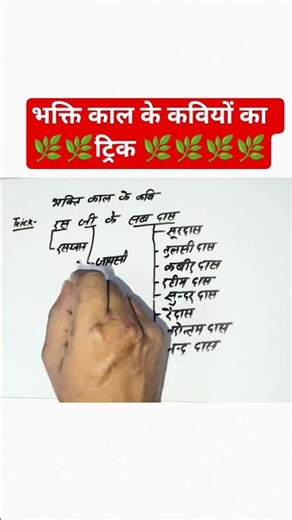 भक्ति काल के कवियों का
ट्रिक
भक्ति काल के कवि
Trick- रस जी के सब दास
रसखान
जायसी
सूरदास
तुलसी दास
कबीर दास
रहीम दास
सुन्दर दास
रैदास
नरोत्तम दास
नन्द दास